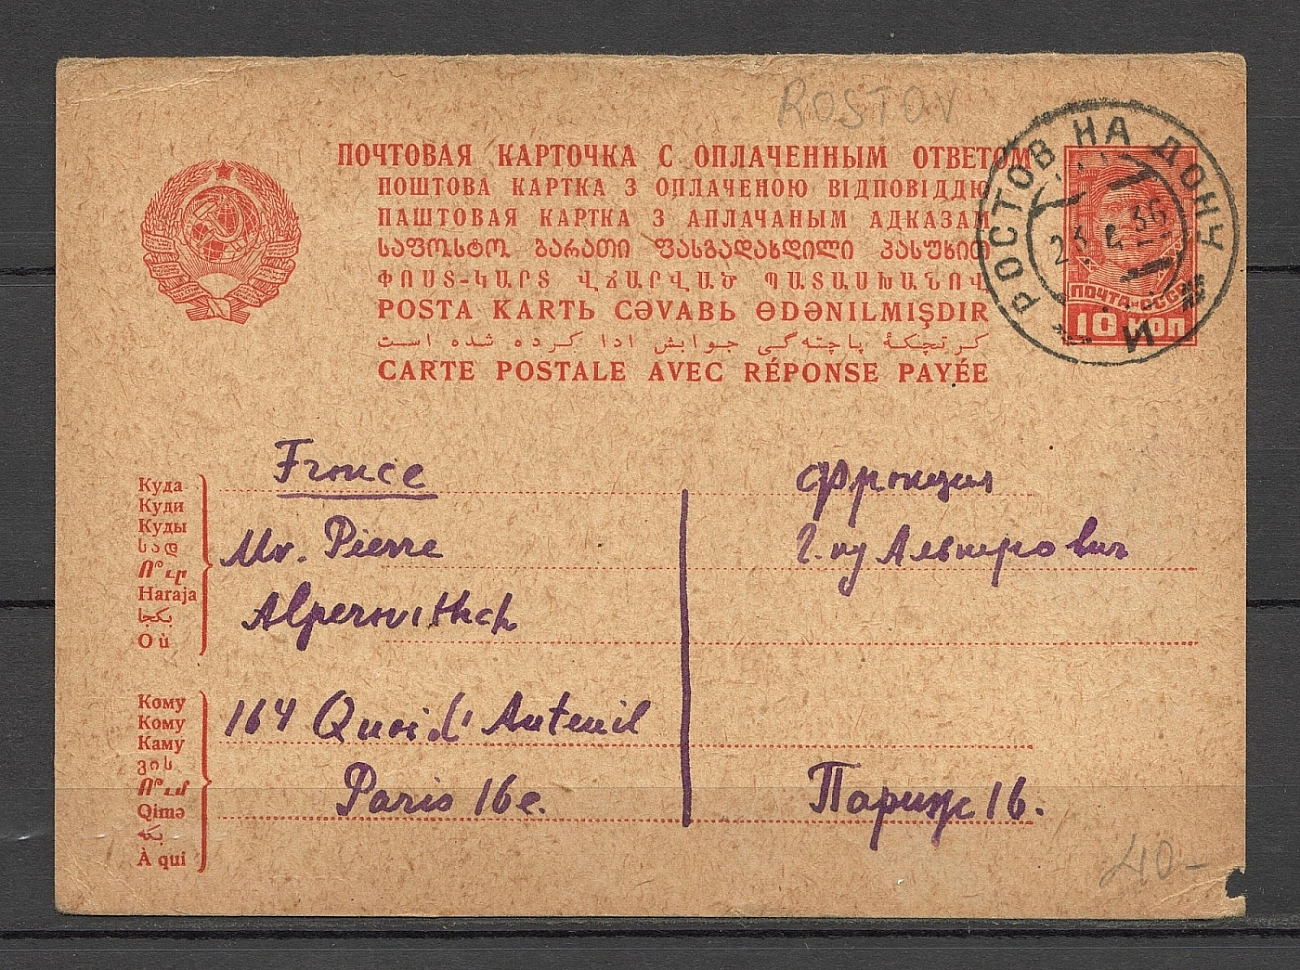 ROSTOV
РОСТОВ НА ДОНУ
23.4.36
И
ПОЧТОВАЯ КАРТОЧКА С ОПЛАЧЕННЫМ ОТВЕТОМ
ПОШТОВА КАРТКА З ОПЛАЧЕНОЮ ВІДПОВІДДЮ
ПАШТОВАЯ КАРТКА З АПЛАЧАНЫМ АДКАЗАМ
ᲡᲐᲤᲝᲡᲢᲝ ᲑᲐᲠᲐᲗᲘ ᲤᲐᲡᲒᲐᲓᲐᲮᲓᲘᲚᲘ ᲞᲐᲡᲣᲮᲘᲗ
ՓՈՍՏ-ԿԱՐՏ ՎՃԱՐՎԱԾ ՊԱՏԱՍԽԱՆՈՎ
POSTA KARTЬ CƏVABЬ ӨDƏNILMIŞDIR
جوابش ادا كرده شده است
CARTE POSTALE AVEC RÉPONSE PAYÉE
ПОЧТА СССР
10 КОП
Куда
Куди
Куды
სად
Ո՞ւր
Haraja
Où
France
Mr. Pierre
Alpernvithch
Франция
Г-ну Альперович
Кому
Кому
Каму
ვის
Ո՞ւմ
Qimə
À qui
164 Quai d'Auteuil
Paris 16e.
Париж 16.
40-